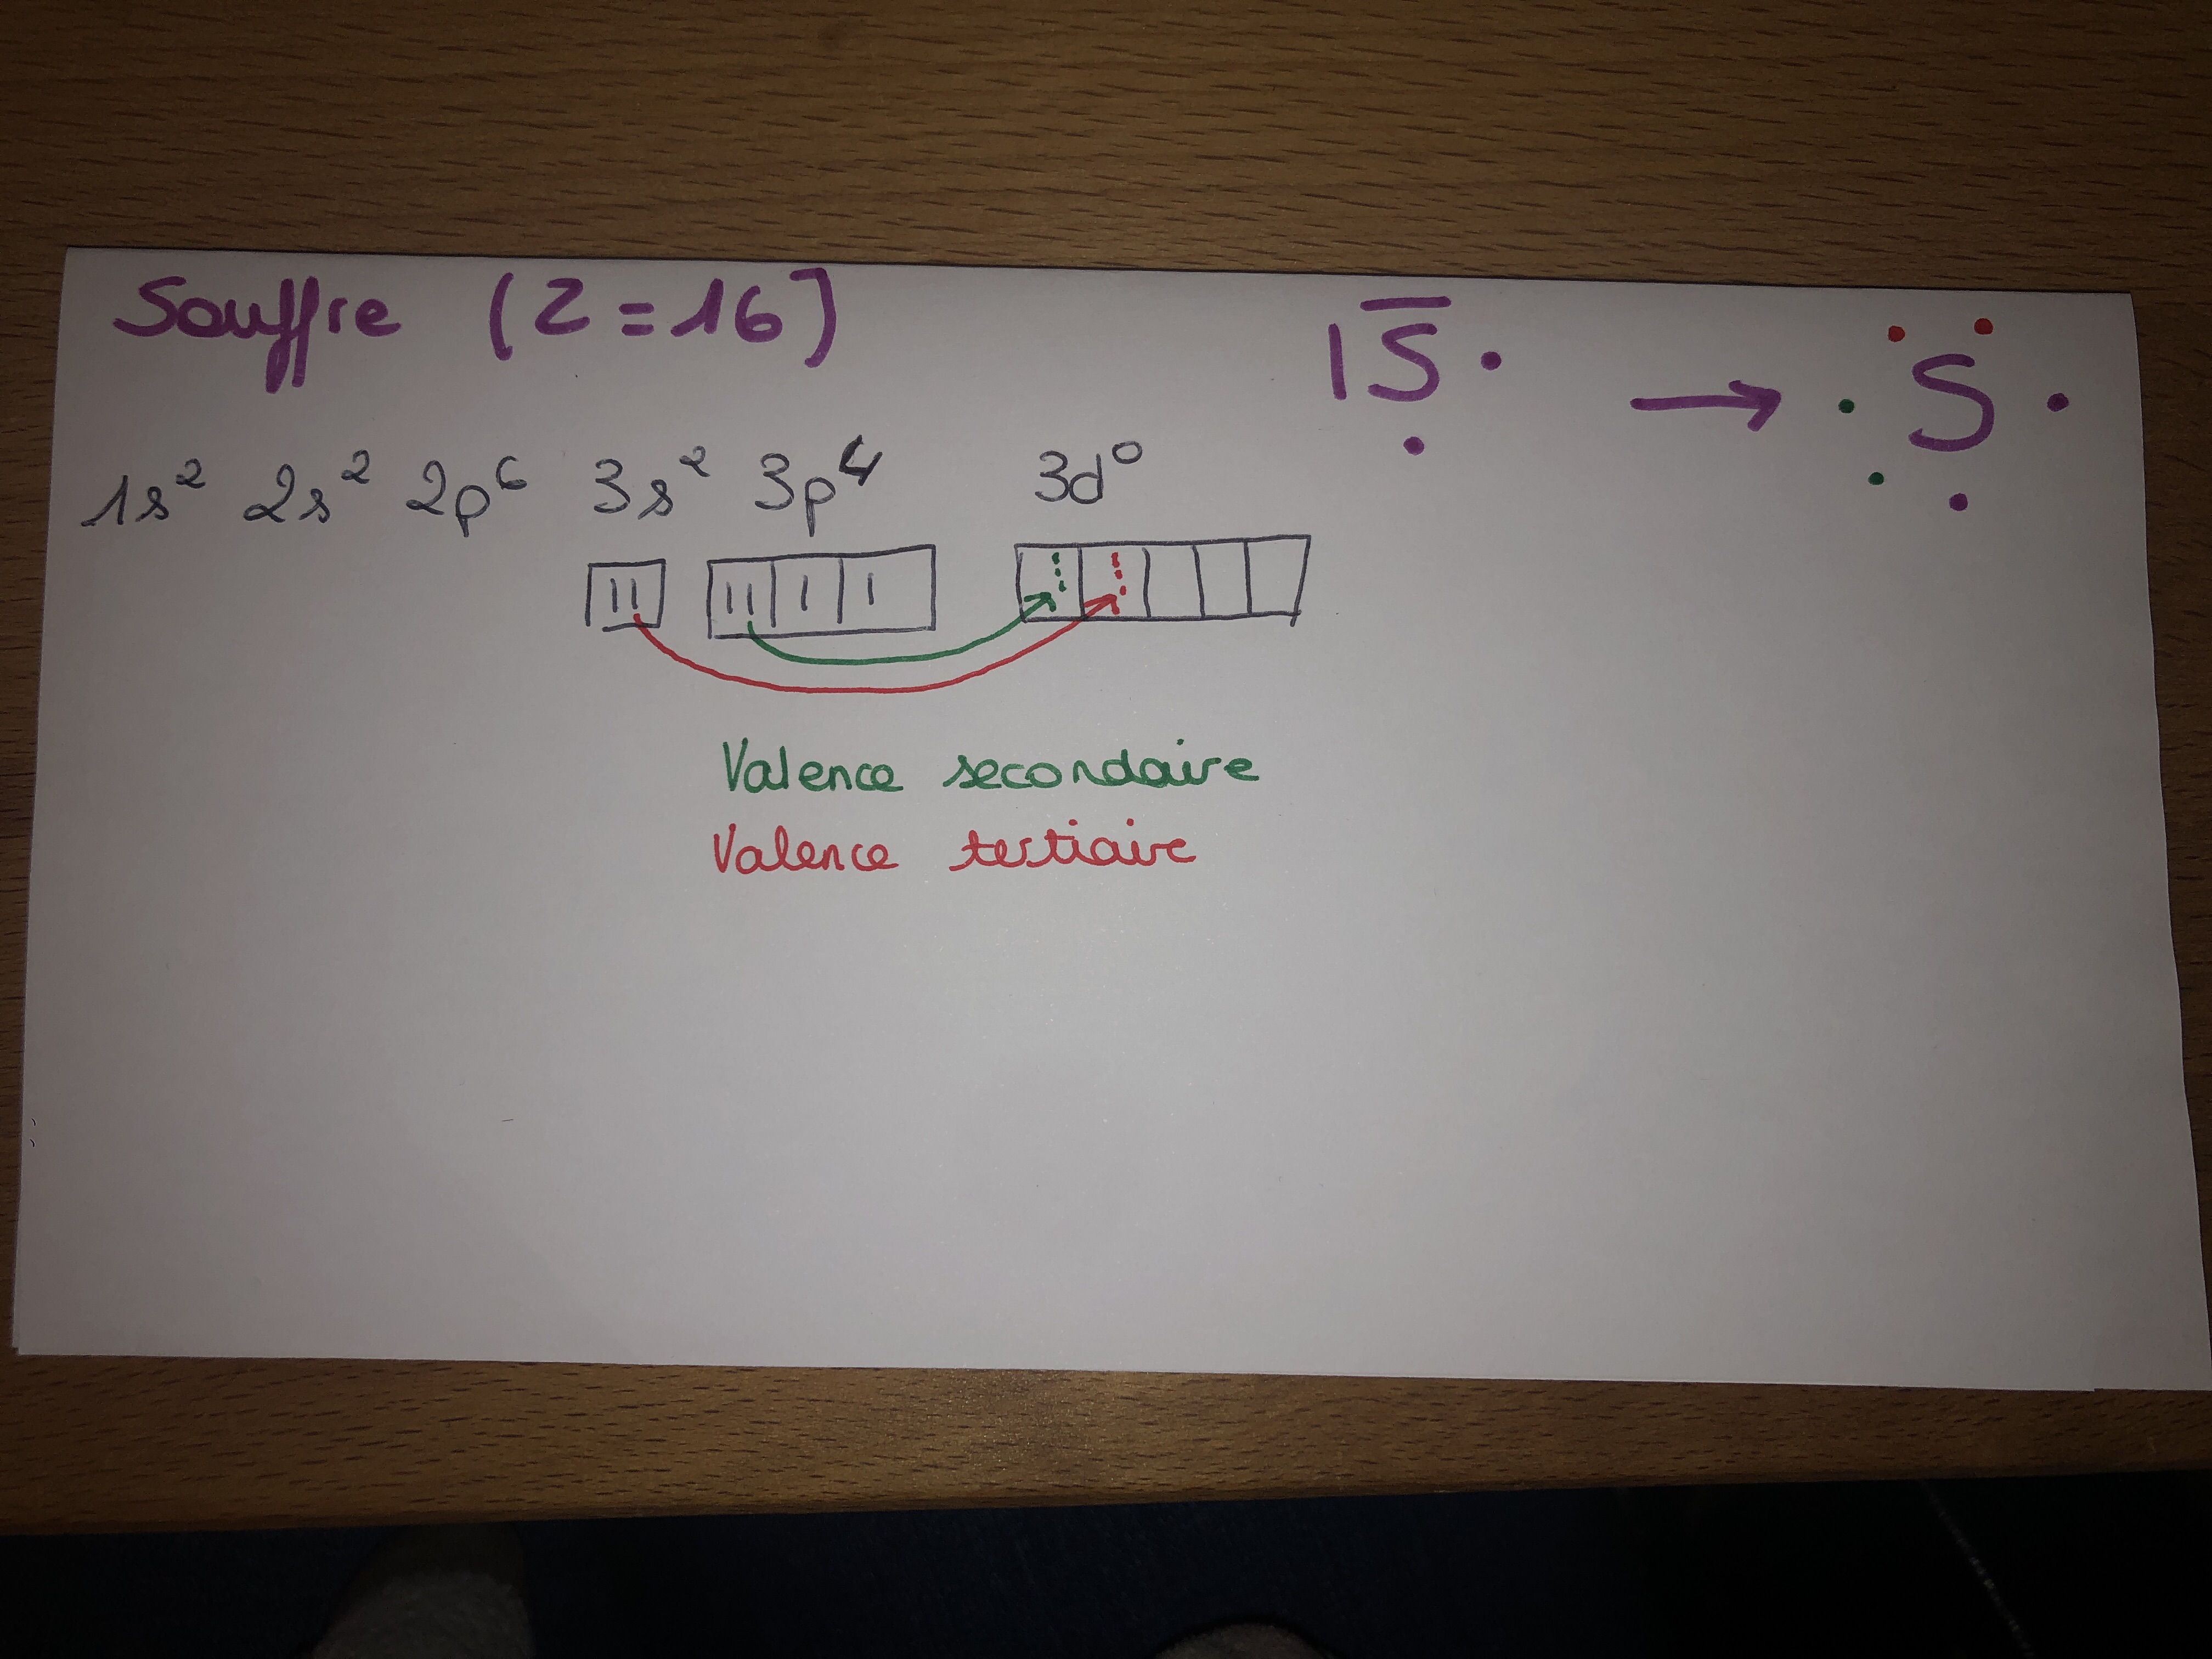 Souffre (Z = 16)
|S̅ • → S
1s² 2s² 2p⁶ 3s² 3p⁴ 3d⁰
Valence secondaire
Valence tertiaire